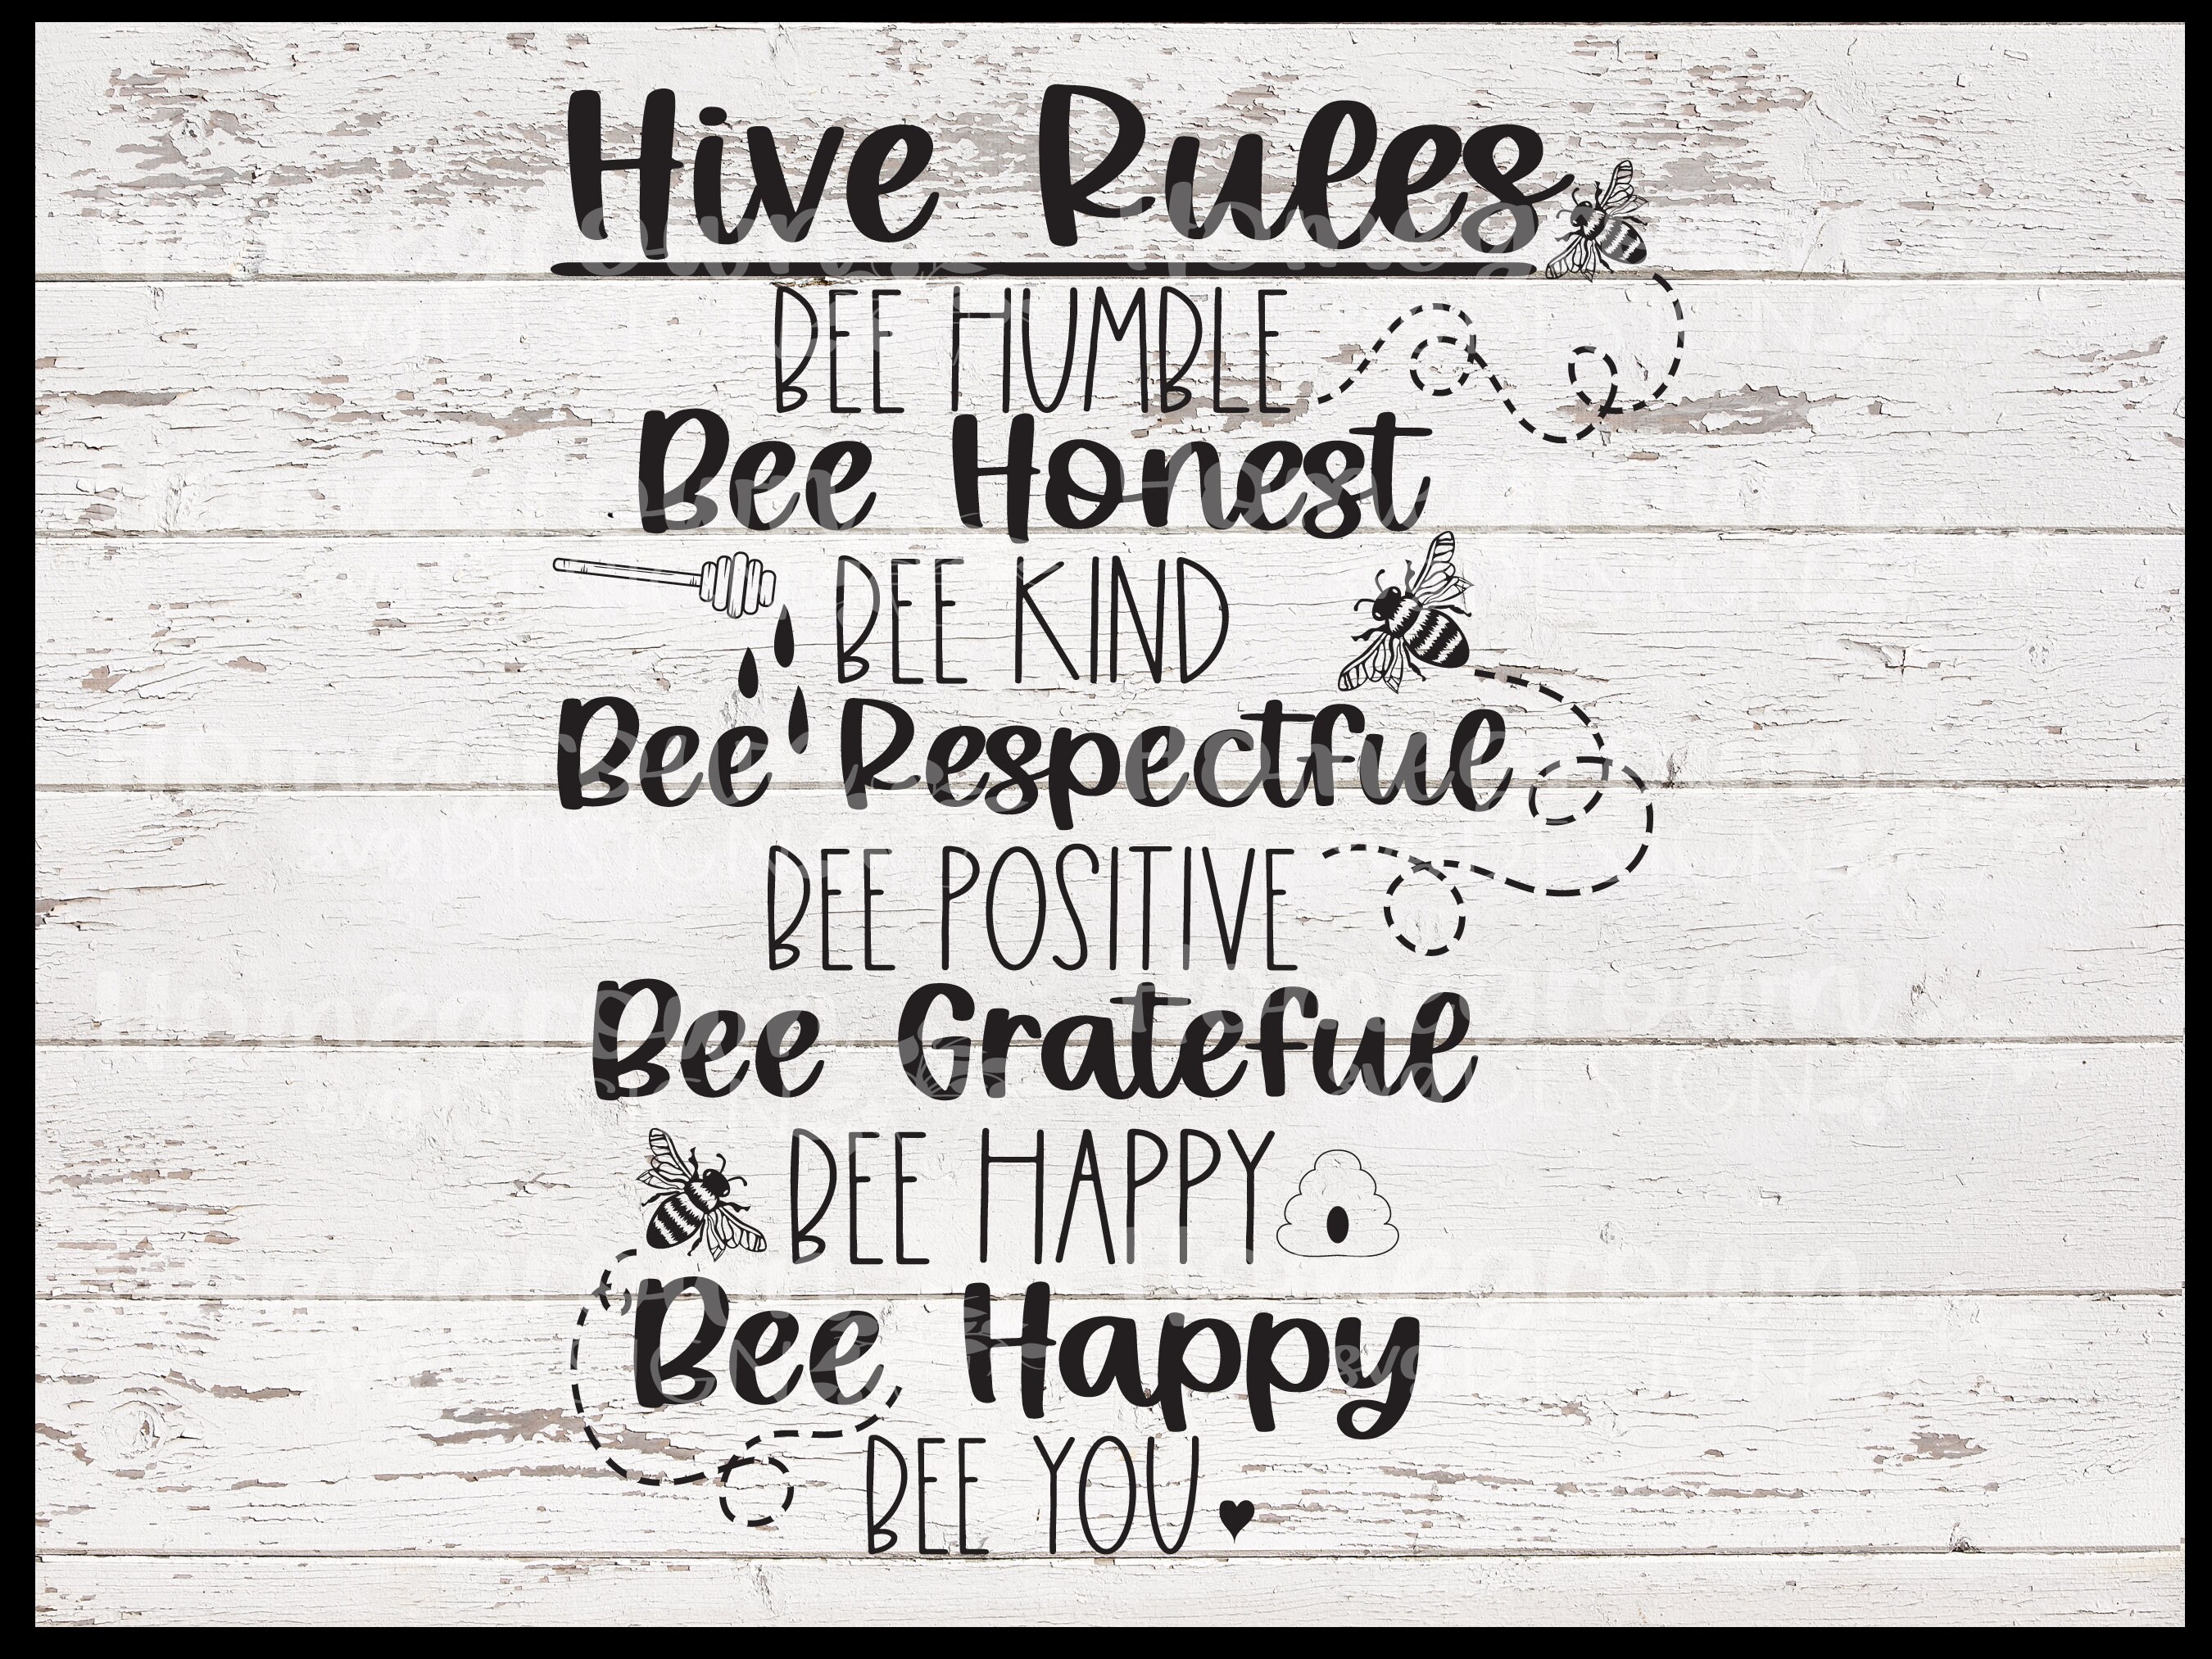 Hive Rules
BEE HUMBLE
Bee Honest
BEE KIND
Bee Respectful
BEE POSITIVE
Bee Grateful
BEE HAPPY
Bee Happy
BEE YOU